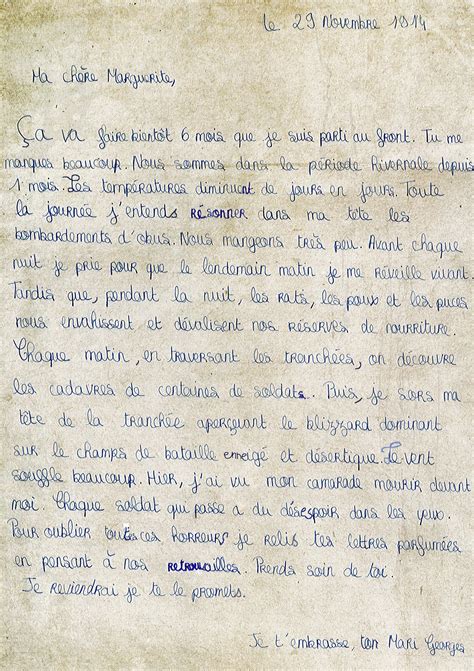 le 29 Novembre 1914
Ma chère Marguerite,
Ça va faire bientôt 6 mois que je suis parti au front. Tu me
manques beaucoup. Nous sommes dans la période hivernale depuis
1 mois. Les températures diminuent de jours en jours. Toute
la journée j'entends résonner dans ma tête les
bombardements d'obus. Nous mangeons très peu. Avant chaque
nuit je prie pour que le lendemain matin je me réveille vivant.
Tandis que, pendant la nuit, les rats, les poux et les puces
nous envahissent et dévalisent nos réserves de nourriture.
Chaque matin, en traversant les tranchées, on découvre
les cadavres de centaines de soldats. Puis, je sors ma
tête de la tranchée aperçevant le blizzard dominant
sur le champs de bataille enneigé et désertique. Le vent
souffle beaucoup. Hier, j'ai vu mon camarade mourir devant
moi. Chaque soldat qui passe a du désespoir dans les yeux.
Pour oublier toutes ces horreurs je relis tes lettres parfumées
en pensant à nos retrouvailles. Prends soin de toi.
Je reviendrai je te le promets.
Je t'embrasse, ton Mari Georges